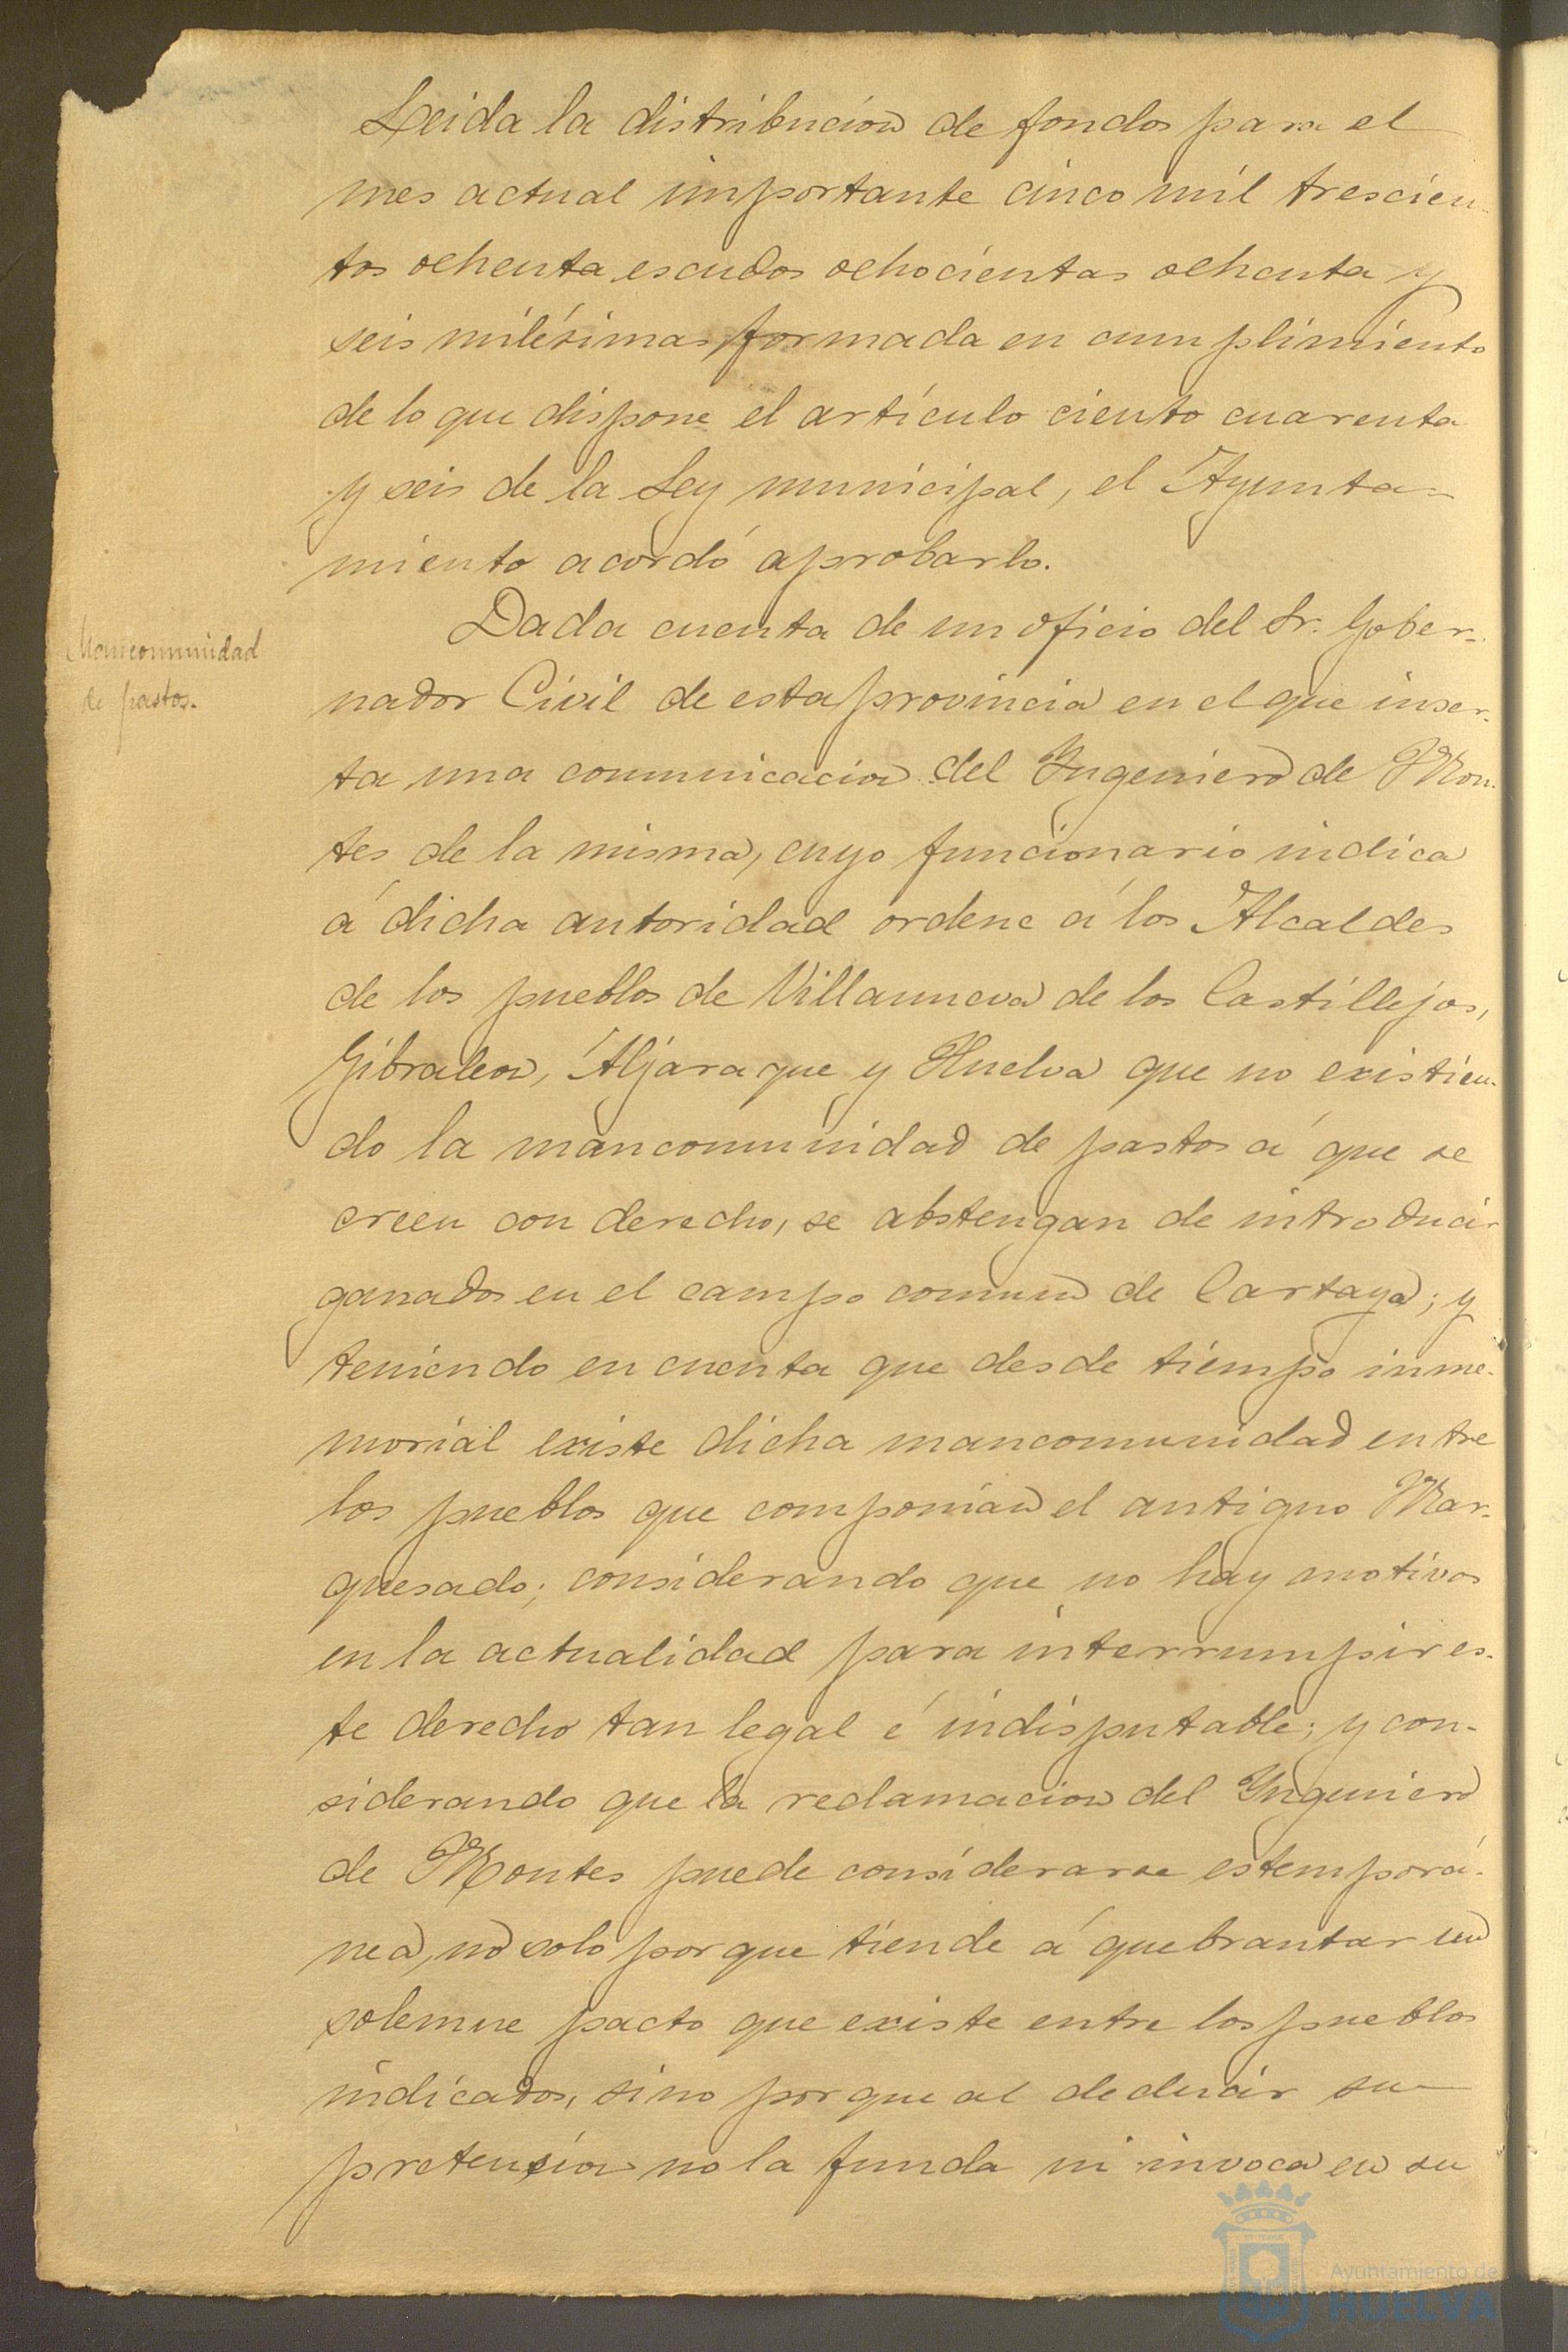 Leida la distribucion de fondos para el
mes actual importante cinco mil trescien-
tos ochenta escudos ochocientas ochenta y
seis milésimas formada en cumplimiento
de lo que dispone el artículo ciento cuarenta
y seis de la Ley municipal, el Ayunta-
miento acordó aprobarlo.
Mancomunidad
de pastos.
Dada cuenta de un oficio del Sr. Gober-
nador Civil de esta provincia en el que inser-
ta una comunicacion del Ingeniero de Mon-
tes de la misma, cuyo funcionario indica
á dicha autoridad ordene á los Alcaldes
de los pueblos de Villanueva de los Castillejos,
Gibraleon, Aljaraque y Huelva que no existien-
do la mancomunidad de pastos á que se
creen con derecho, se abstengan de introducir
ganados en el campo comun de Cartaya; y
teniendo en cuenta que desde tiempo inme-
morial existe dicha mancomunidad entre
los pueblos que componian el antiguo Mar-
quesado; considerando que no hay motivos
en la actualidad para interrumpir es-
te derecho tan legal é indisputable; y con-
siderando que la reclamacion del Ingeniero
de Montes puede considerarse estemporá-
nea, no solo porque tiende á quebrantar un
solemne pacto que existe entre los pueblos
indicados, sino porque al deducir su
pretension no la funda ni invoca en su
Ayuntamiento de
HUELVA